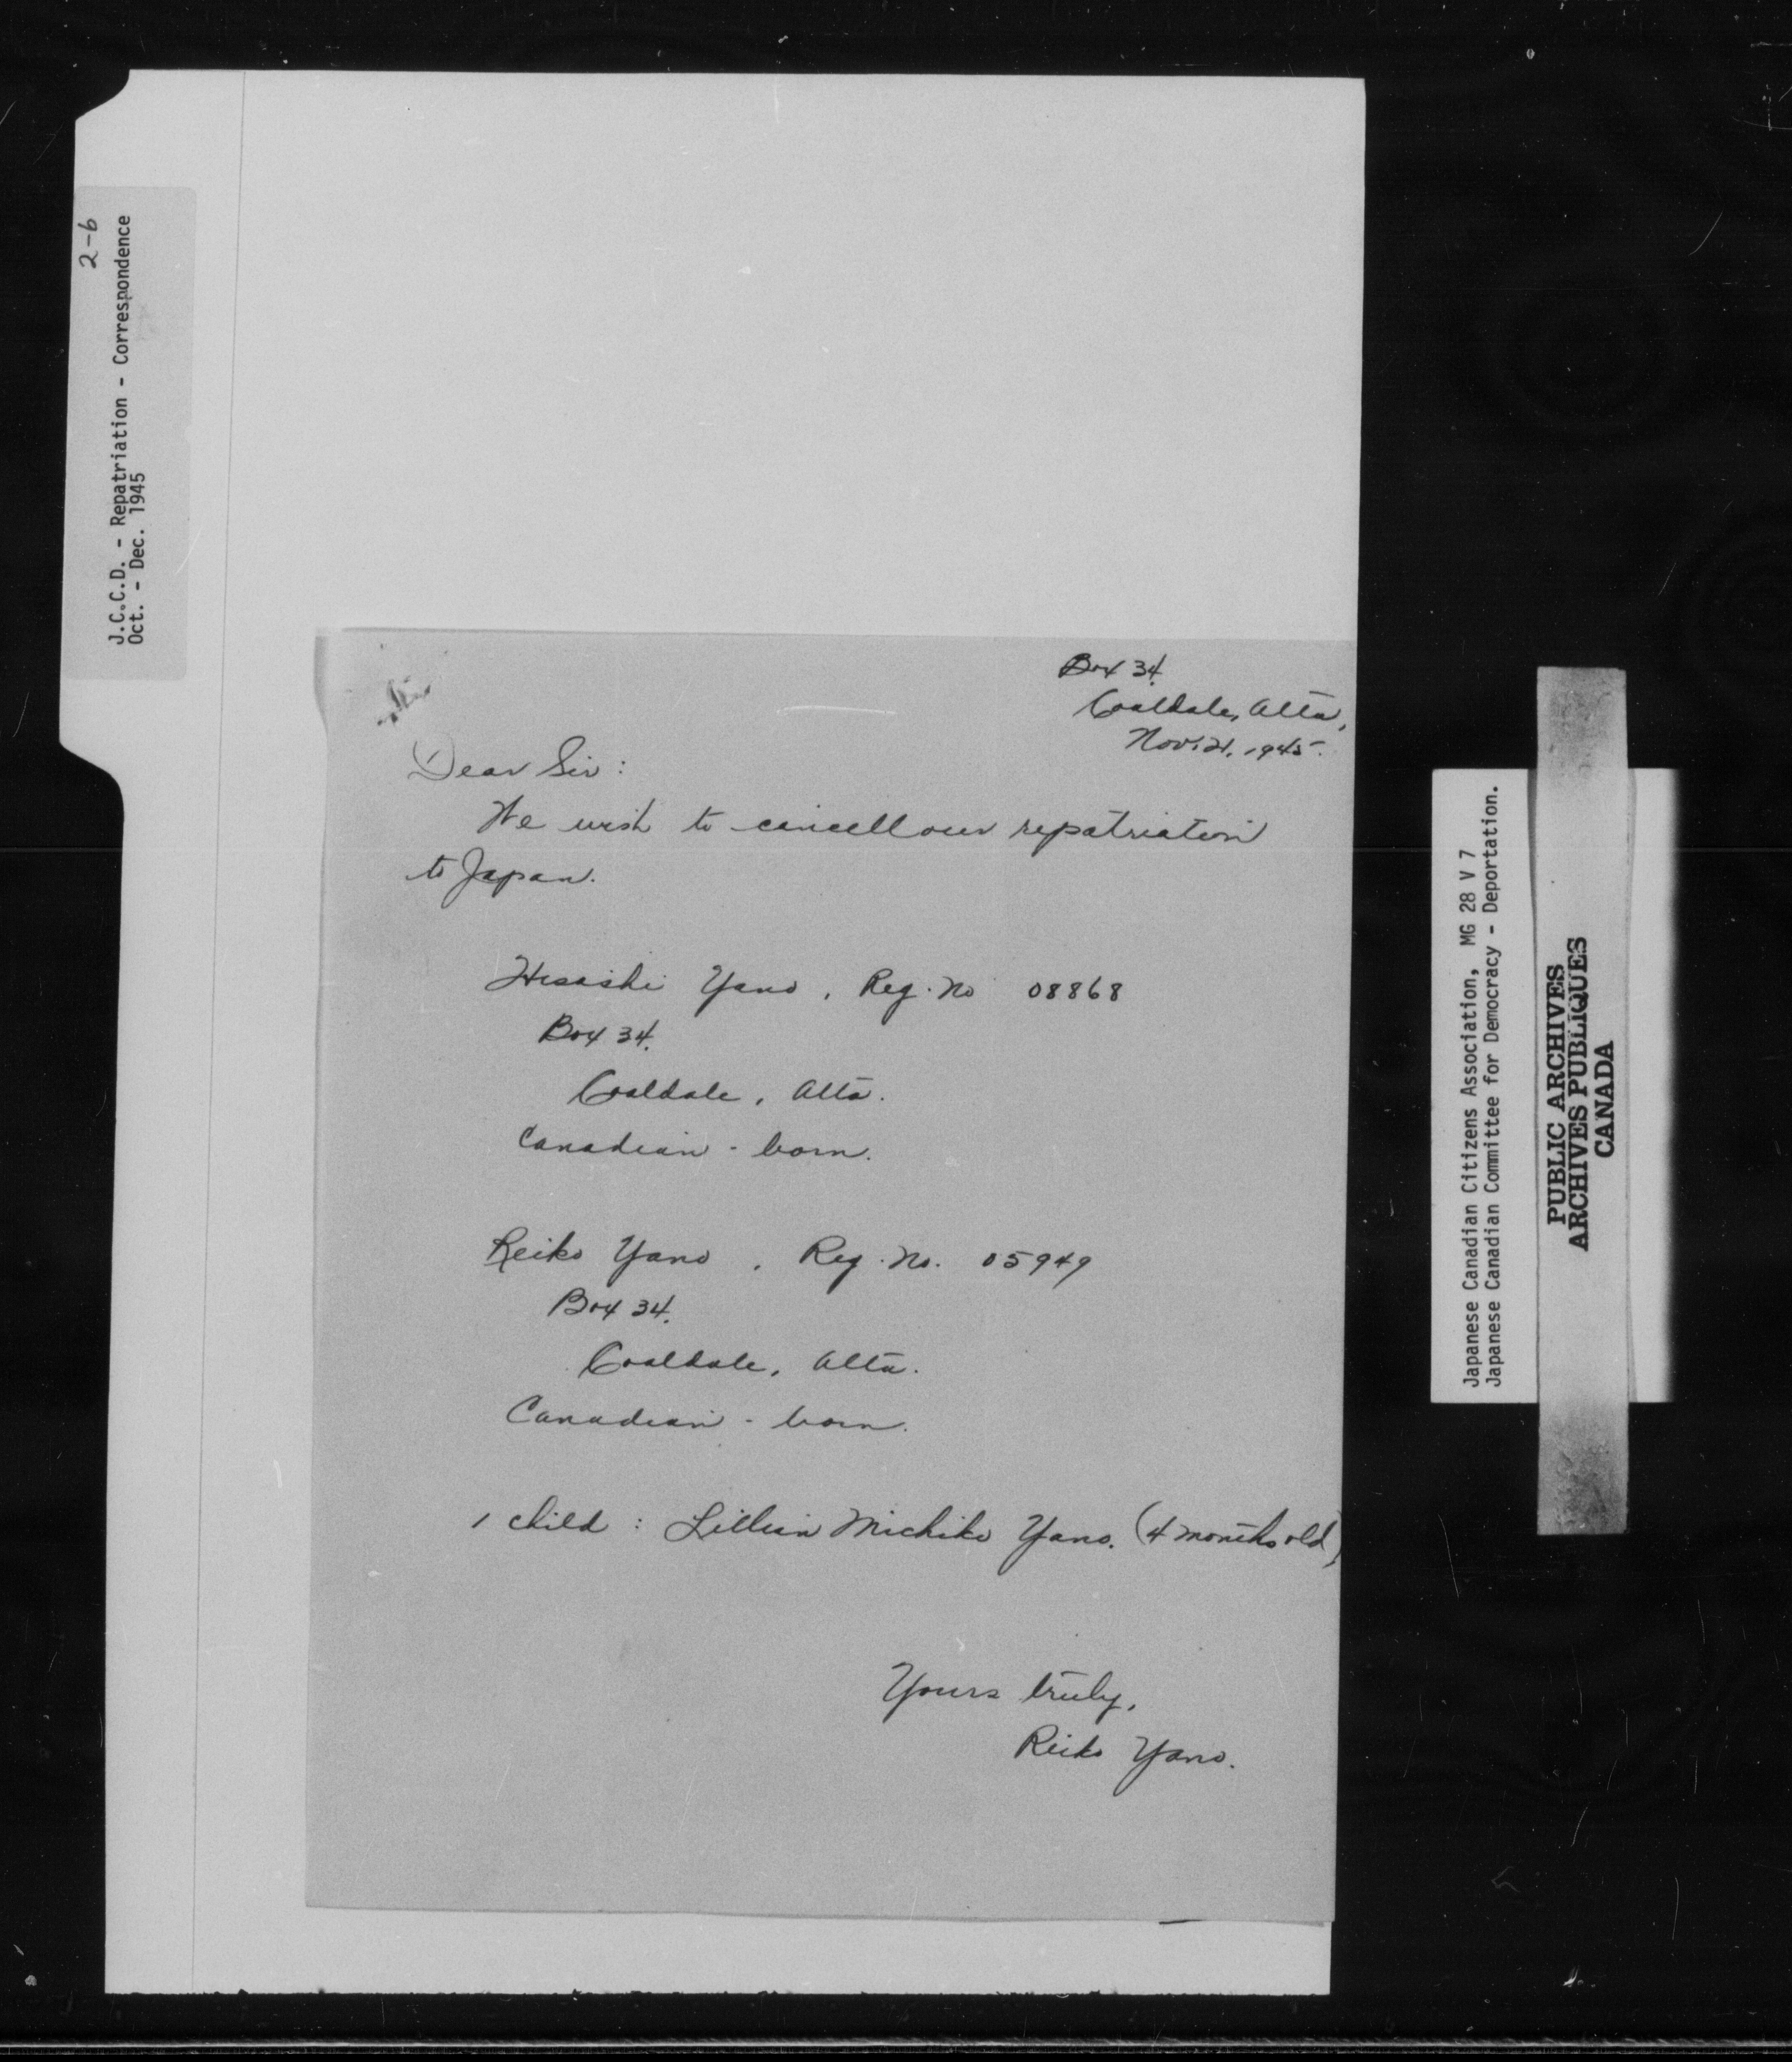 2-6
J.C.C.D. - Repatriation - Correspondence
Oct. - Dec. 1945
Box 34.
Coaldale, Alta,
Nov. 21, 1945.
Dear Sir:
We wish to cancell our repatriation
to Japan.
Hisashi Yano, Reg. No 08868
Box 34.
Coaldale, Alta.
Canadian-born.
Reiko Yano, Reg. No. 05949
Box 34.
Coaldale, Alta.
Canadian-born.
1 child: Lillian Michiko Yano. (4 months old)
Yours truly,
Reiko Yano.
Japanese Canadian Citizens Association, MG 28 V 7
Japanese Canadian Committee for Democracy - Deportation.
PUBLIC ARCHIVES
ARCHIVES PUBLIQUES
CANADA